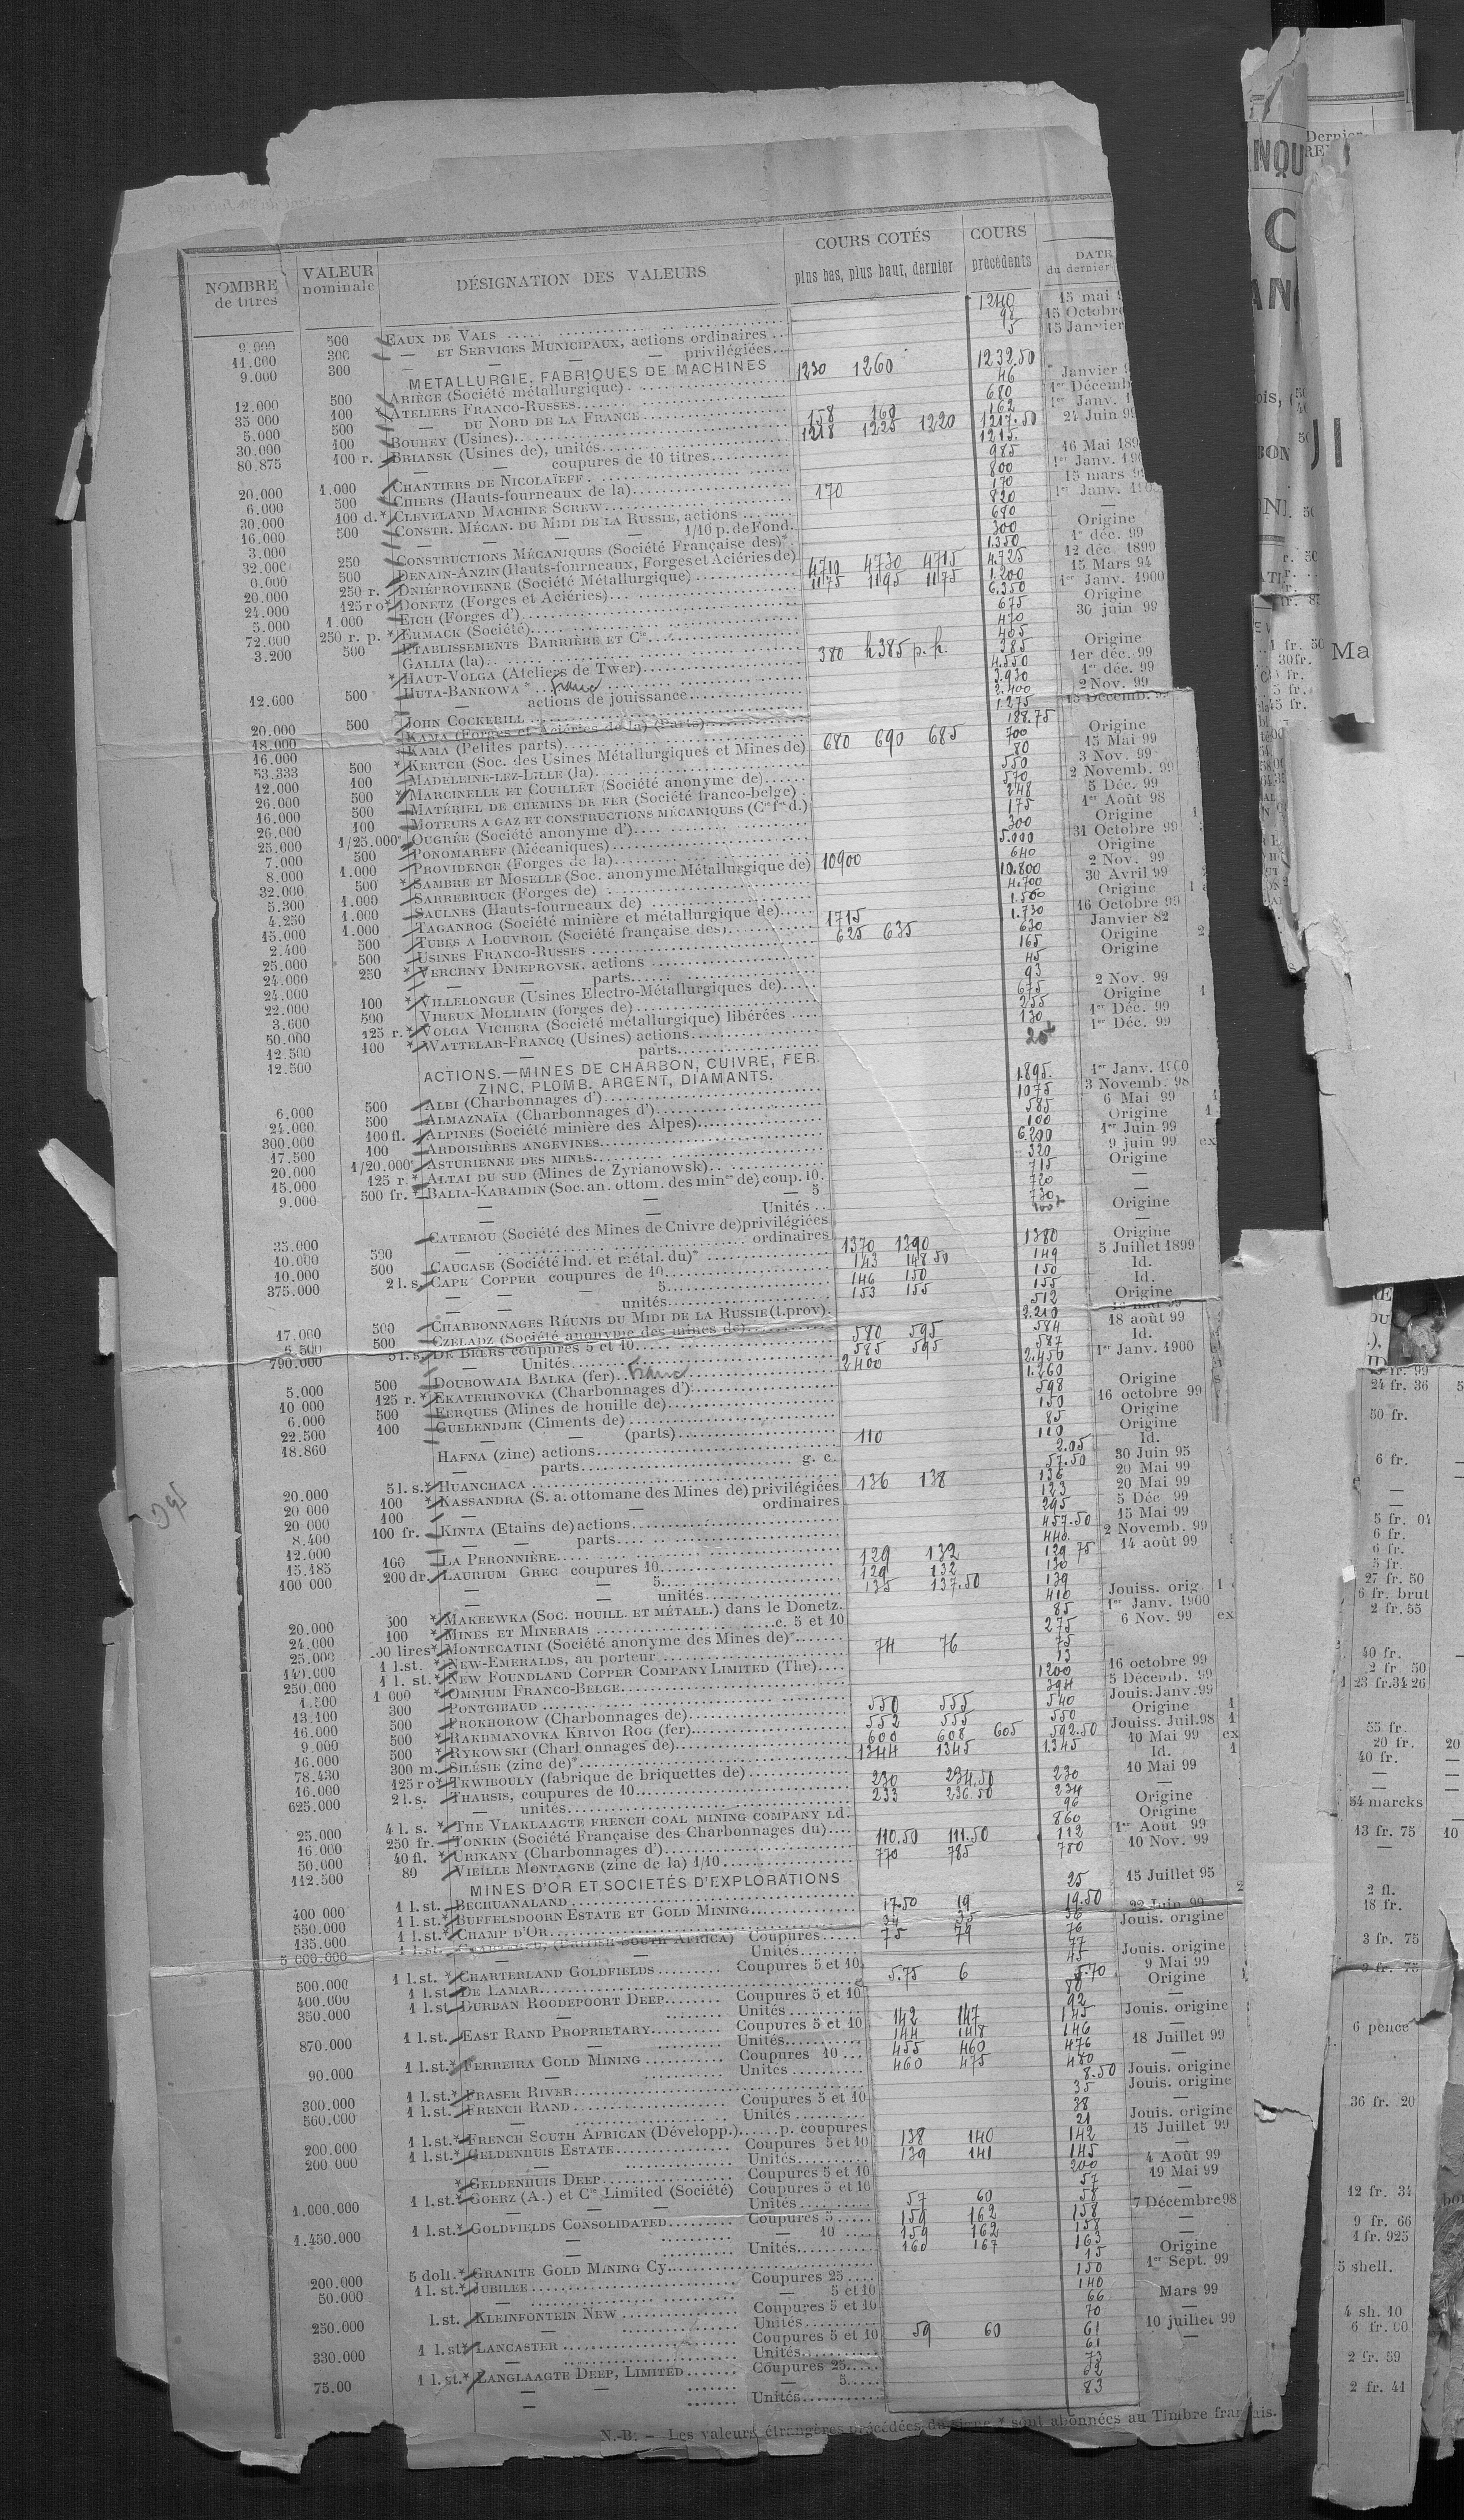 NOMBRE de titres | VALEUR nominale | DÉSIGNATION DES VALEURS | COURS COTÉS plus bas, plus haut, dernier | COURS précédents | DATE du dernier
500 EAUX DE VALS 1240 15 mai
11.000 300 — ET SERVICES MUNICIPAUX, actions ordinaires 15 Octobre
9.000 300 — — privilégiées 5 15 Janvier
METALLURGIE, FABRIQUES DE MACHINES
12.000 500 ARIÈGE (Société métallurgique) 1230 1260 1232.50 Janvier
35 000 100 * ATELIERS FRANCO-RUSSES 46 1er Décemb
5.000 500 — DU NORD DE LA FRANCE 680 1er Janv.
30.000 100 BOUHEY (Usines) 158 160 162 24 Juin 99
80.875 100 r. BRIANSK (Usines de), unités 1218 1225 1220 1217.50
— — coupures de 10 titres 1215
20.000 1.000 CHANTIERS DE NICOLAÏEFF 985 16 Mai 189
6.000 500 CHIERS (Hauts-fourneaux de la) 800 1er Janv. 190
30.000 100 d.* CLEVELAND MACHINE SCREW 170 170 15 mars 99
16.000 500 CONSTR. MÉCAN. DU MIDI DE LA RUSSIE, actions 820 1er Janv. 1900
3.000 — — — — 1/10 p. de Fond. 680 —
32.000 250 CONSTRUCTIONS MÉCANIQUES (Société Française des)* 300 Origine
500 DENAIN-ANZIN (Hauts-fourneaux, Forges et Aciéries de) 1.350 1er déc. 99
20.000 250 r. DNIÉPROVIENNE (Société Métallurgique) 4710 4730 4715 4.725 12 déc. 1899
24.000 125 ro* DONETZ (Forges et Aciéries) 1175 1195 1175 1.200 15 Mars 94
5.000 1.000 EICH (Forges d') 6.350 1er Janv. 1900
72.000 250 r. p. * ERMACK (Société) 675 Origine
3.200 500 ETABLISSEMENTS BARRIÈRE ET Cie 470 30 juin 99
GALLIA (la) 405
* HAUT-VOLGA (Ateliers de Twer) 380 à 385 p. h. 385 Origine
12.600 500 HUTA-BANKOWA * 4.550 1er déc. 99
— actions de jouissance 3.930 1er déc. 99
20.000 500 JOHN COCKERILL 2.400 2 Nov. 99
18.000 KAMA (Forges et Aciéries de la) (Parts) 1.275 15 Décemb. 99
16.000 KAMA (Petites parts) 188.75
53.333 500 * KERTCH (Soc. des Usines Métallurgiques et Mines de) 680 690 685 700 Origine
12.000 100 MADELEINE-LEZ-LILLE (la) 80 15 Mai 99
26.000 500 * MARCINELLE ET COUILLET (Société anonyme de) 550 3 Nov. 99
16.000 500 MATÉRIEL DE CHEMINS DE FER (Société franco-belge) 570 2 Novemb. 99
26.000 100 MOTEURS A GAZ ET CONSTRUCTIONS MÉCANIQUES (Cie fse d.) 248 5 Déc. 99
25.000 1/25.000e OUGRÉE (Société anonyme d') 175 1er Août 98
7.000 500 PONOMAREFF (Mécaniques) 300 Origine
8.000 1.000 PROVIDENCE (Forges de la) 5.000 31 Octobre 99
32.000 500 * SAMBRE ET MOSELLE (Soc. anonyme Métallurgique de) 640 Origine
5.300 1.000 SARREBRUCK (Forges de) 10900 10.800 2 Nov. 99
4.250 1.000 SAULNES (Hauts-fourneaux de) 4.700 30 Avril 99
15.000 1.000 TAGANROG (Société minière et métallurgique de) 1.560 Origine
2.400 500 TUBES A LOUVROIL (Société française des) 1715 1.730 16 Octobre 99
25.000 500 USINES FRANCO-RUSSES 625 635 630 Janvier 82
24.000 250 * VERCHNY DNIEPROVSK, actions 165 Origine
24.000 — — parts 45 Origine
22.000 100 * VILLELONGUE (Usines Electro-Métallurgiques de) 93
3.600 500 VIREUX MOLHAIN (forges de) 675 2 Nov. 99
50.000 125 r. * VOLGA VICHERA (Société métallurgique) libérées 255 Origine
12.500 100 * WATTELAR-FRANCQ (Usines) actions 130 1er Déc. 99
12.500 — parts 1er Déc. 99
ACTIONS.—MINES DE CHARBON, CUIVRE, FER,
ZINC, PLOMB, ARGENT, DIAMANTS.
6.000 500 ALBI (Charbonnages d') 1.895 1er Janv. 1900
24.000 500 ALMAZNAÏA (Charbonnages d') 1075 3 Novemb. 98
300.000 100 fl. ALPINES (Société minière des Alpes) 585 6 Mai 99
17.500 100 ARDOISIÈRES ANGEVINES 100 Origine
20.000 1/20.000e ASTURIENNE DES MINES 6.200 1er Juin 99
15.000 125 r. * ALTAI DU SUD (Mines de Zyrianowsk) 320 9 juin 99 ex
9.000 500 fr. * BALIA-KARAIDIN (Soc. an. ottom. des mines de) coup. 10 715 Origine
— — — 5 720 —
— — Unités 730 —
35.000 CATEMOU (Société des Mines de Cuivre de) privilégiées Origine
10.000 500 — ordinaires —
10.000 500 CAUCASE (Société Ind. et métal. du)* 1370 1390 1380 Origine
375.000 2 l. s. CAPE COPPER coupures de 10 143 148 50 149 5 Juillet 1899
— — — 5 146 150 150 Id.
— — unités 153 155 155 Id.
17.000 500 CHARBONNAGES RÉUNIS DU MIDI DE LA RUSSIE (t. prov) 512 Origine
6.500 500 CZELADZ (Société anonyme des mines de) 2.210
790.000 5 l. s. DE BEERS coupures 5 et 10 580 595 584 18 août 99
— Unités 585 595 587 Id.
5.000 500 DOUBOWAIA BALKA (fer) 2400 2.450 1er Janv. 1900
10 000 125 r. * EKATERINOVKA (Charbonnages d') 1.260
6.000 500 FERQUES (Mines de houille de) 598 Origine
22.500 100 GUELENDJIK (Ciments de) 150 16 octobre 99
18.860 — — (parts) 85 Origine
HAFNA (zinc) actions 110 110 Origine
— parts g. c. 2.05 Id.
20.000 5 l. s. * HUANCHACA 57.50 30 Juin 95
20 000 100 * KASSANDRA (S. a. ottomane des Mines de) privilégiées 136 138 136 20 Mai 99
20 000 100 — — ordinaires 123 20 Mai 99
8.400 100 fr. KINTA (Etains de) actions 295 5 Déc. 99
12.000 — — parts 457.50 15 Mai 99
15.185 100 LA PERONNIÈRE 440 2 Novemb. 99
100 000 200 dr. LAURIUM GREC coupures 10 129 132 129 75 14 août 99
— — 5 129 132 130
— — unités 135 137.50 139
20.000 500 * MAKEEWKA (Soc. HOUILL. ET MÉTALL.) dans le Donetz 410 Jouiss. orig.
24.000 100 * MINES ET MINERAIS c. 5 et 10 85 1er Janv. 1900
25.000 lires* MONTECATINI (Société anonyme des Mines de)* 275 6 Nov. 99 ex
140.000 1 l.st. * NEW-EMERALDS, au porteur 74 76 75
250.000 1 l. st. * NEW FOUNDLAND COPPER COMPANY LIMITED (The) 13
1.500 1 000 * OMNIUM FRANCO-BELGE 1200 16 octobre 99
13.100 300 PONTGIBAUD 394 5 Décemb. 99
16.000 500 PROKHOROW (Charbonnages de) 550 555 540 Jouis. Janv. 99
9.000 500 * RAKHMANOVKA KRIVOI ROG (fer) 552 555 550 Origine
16.000 500 * RYKOWSKI (Charbonnages de) 600 608 605 592.50 Jouiss. Juil. 98
78.430 300 m. SILÉSIE (zinc de)* 1344 1345 1.345 10 Mai 99 ex
16.000 125 ro* TKWIBOULY (fabrique de briquettes de) Id.
625.000 2 l. s. THARSIS, coupures de 10 230 234.50 230 10 Mai 99
— unités 233 236.50 234 —
25.000 4 l. s. * THE VLAKLAAGTE FRENCH COAL MINING COMPANY Ld. 96 Origine
16.000 250 fr. TONKIN (Société Française des Charbonnages du) 860 Origine
50.000 40 fl. * URIKANY (Charbonnages d') 110.50 111.50 112 1er Août 99
112.500 80 VIEILLE MONTAGNE (zinc de la) 1/10 770 785 780 10 Nov. 99
MINES D'OR ET SOCIETÉS D'EXPLORATIONS
400 000 1 l. st. BECHUANALAND 25 15 Juillet 95
550.000 1 l.st.* BUFFELSDOORN ESTATE ET GOLD MINING 17.50 19 19.50
135.000 1 l.st.* CHAMP D'OR 34 35 36 22 Juin 99
5 000.000 (BRITISH SOUTH AFRICA) Coupures 75 79 76 Jouis. origine
— Unités 77
500.000 1 l.st. * CHARTERLAND GOLDFIELDS Coupures 5 et 10 45 Jouis. origine
400.000 1 l.st DE LAMAR 5.75 6 5.70 9 Mai 99
350.000 1 l.st DURBAN ROODEPOORT DEEP Coupures 5 et 10 Origine
— Unités 92 —
870.000 1 l.st. EAST RAND PROPRIETARY Coupures 5 et 10 142 147 145 Jouis. origine
— Unités 144 148 146 —
90.000 1 l.st.* FERREIRA GOLD MINING Coupures 10 455 460 476 18 Juillet 99
— Unités 460 475 480 —
300.000 1 l.st.* FRASER RIVER 8.50 Jouis. origine
560.000 1 l.st. FRENCH RAND Coupures 5 et 10 35 Jouis. origine
— Unités 38 —
200.000 1 l.st.* FRENCH SOUTH AFRICAN (Développ.) p. coupures 21 Jouis. origine
200 000 1 l.st.* GELDENHUIS ESTATE Coupures 5 et 10 138 140 142 15 Juillet 99
— Unités 139 141 145 —
* GELDENHUIS DEEP Coupures 5 et 10 200 4 Août 99
1.000.000 1 l.st.* GOERZ (A.) et Cie Limited (Société) Coupures 5 et 10 57 19 Mai 99
— — Unités 57 60 58 —
1.450.000 1 l.st.* GOLDFIELDS CONSOLIDATED Coupures 5 159 162 158 7 Décembre 98
— — 10 159 162 158 —
— Unités 160 167 163 —
200.000 5 doll.* GRANITE GOLD MINING Cy 15 Origine
50.000 1 l. st.* JUBILEE Coupures 25 150 1er Sept. 99
— — 5 et 10 140
250.000 l.st. KLEINFONTEIN NEW Coupures 5 et 10 66 Mars 99
— Unités 70 —
330.000 1 l.st* LANCASTER Coupures 5 et 10 59 60 61 10 juillet 99
— Unités 61 —
75.00 1 l. st.* LANGLAAGTE DEEP, LIMITED Coupures 25 73
— — 5
— Unités 83
N.-B. — Les valeurs étrangères précédées du signe * sont abonnées au Timbre français.
NQU
C
Ma
24 fr. 36
50 fr.
6 fr.
5 fr. 04
6 fr.
6 fr.
5 fr.
27 fr. 50
6 fr. brut
2 fr. 55
40 fr.
2 fr. 50
23 fr. 34 26
55 fr.
20 fr. 20
40 fr.
54 marcks
13 fr. 75 10
2 fl.
18 fr.
3 fr. 75
6 pence
36 fr. 20
12 fr. 34
9 fr. 66
1 fr. 925
5 shell.
4 sh. 10
2 fr. 59
2 fr. 41